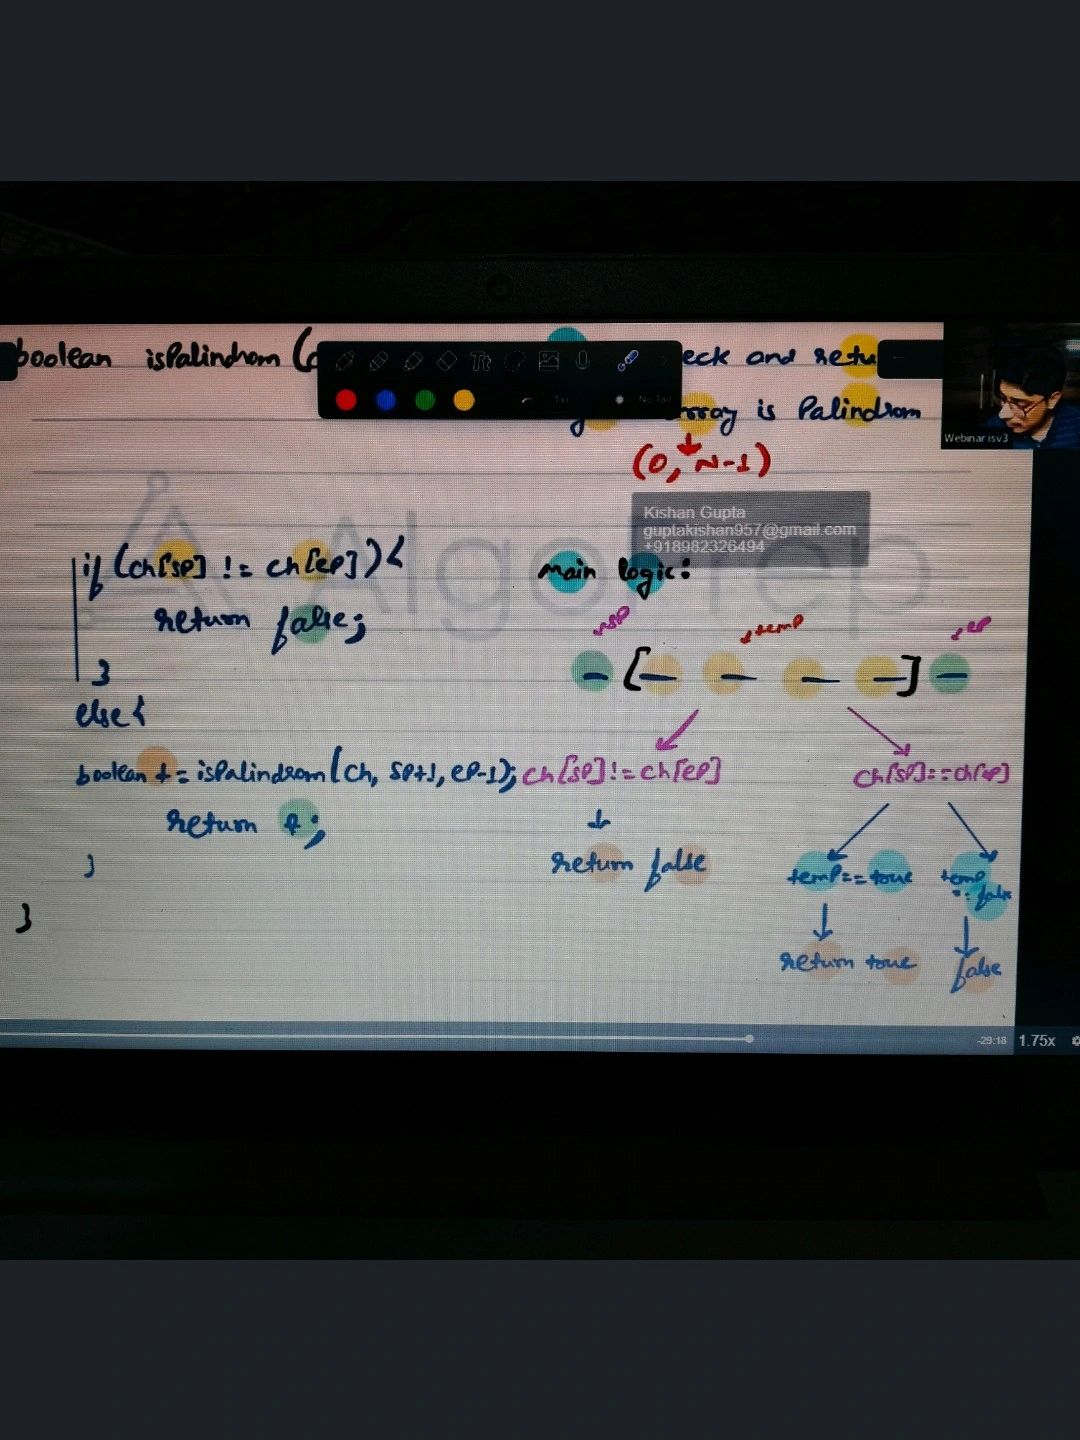 boolean isPalindrom (
eck and retu
array is Palindrom
(0, N-1)
Webinar isv3
Kishan Gupta
guptakishan957@gmail.com
+918982326494
Algo rep
if (ch[sp] != ch[ep]) {
return false;
}
else {
boolean t = isPalindrom (ch, sp+1, ep-1);
return t;
}
}
main logic:
sp
temp
ep
[ ]
ch[sp] != ch[ep]
return false
ch[sp] == ch[ep]
temp == true
return true
temp == false
false
-29:18 1.75x